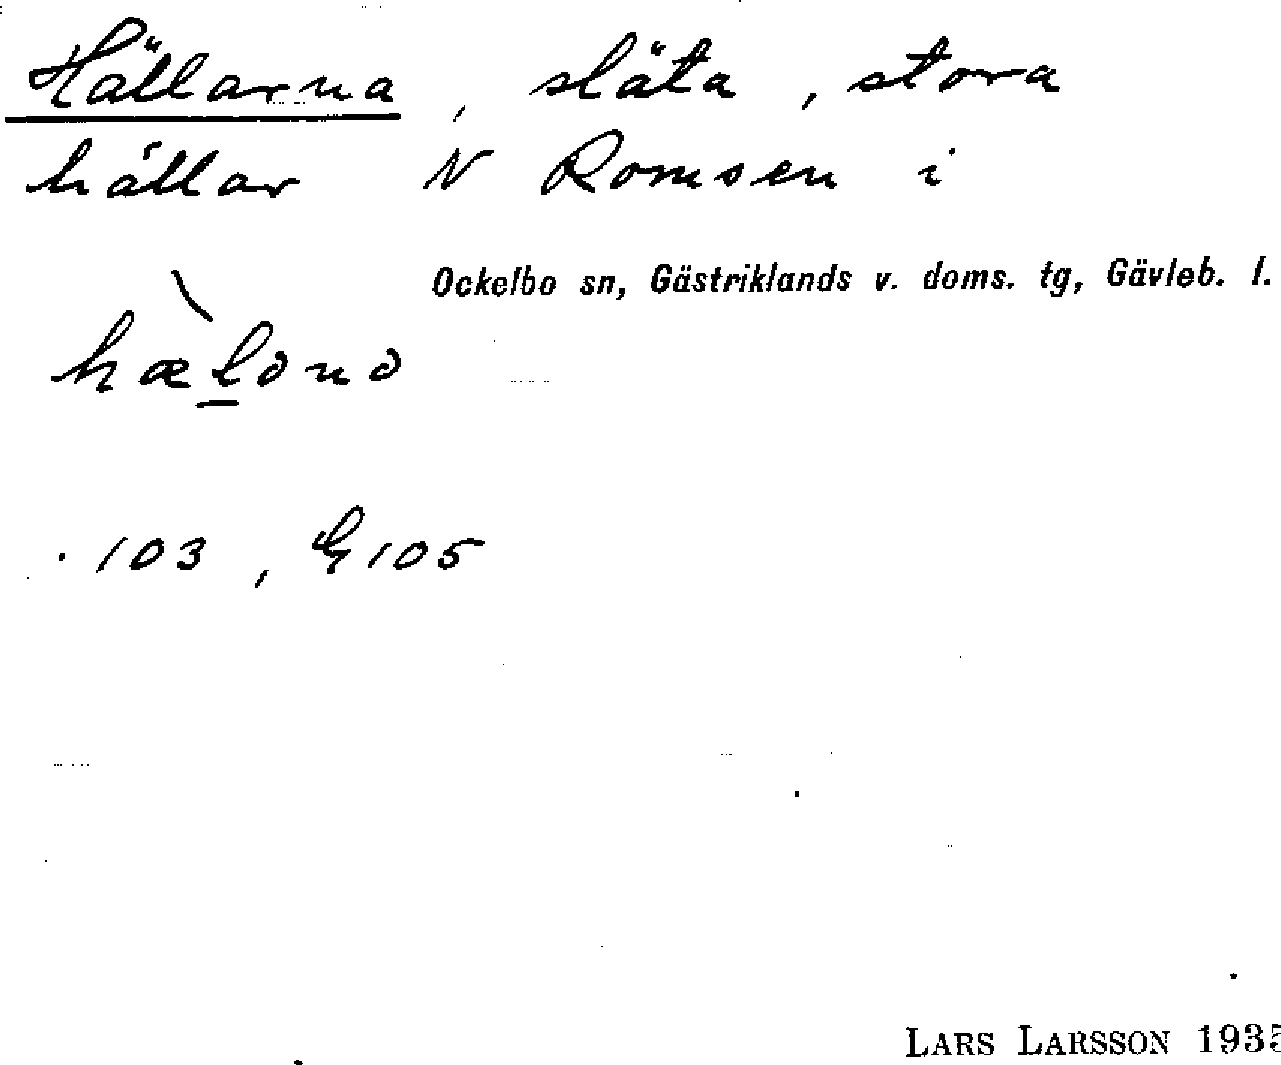 Hällarna, släta, stora
hällar N Romsen i
Ockelbo sn, Gästriklands v. doms. tg, Gävleb. l.
hælǝnǝ
103, G105
LARS LARSSON 1935